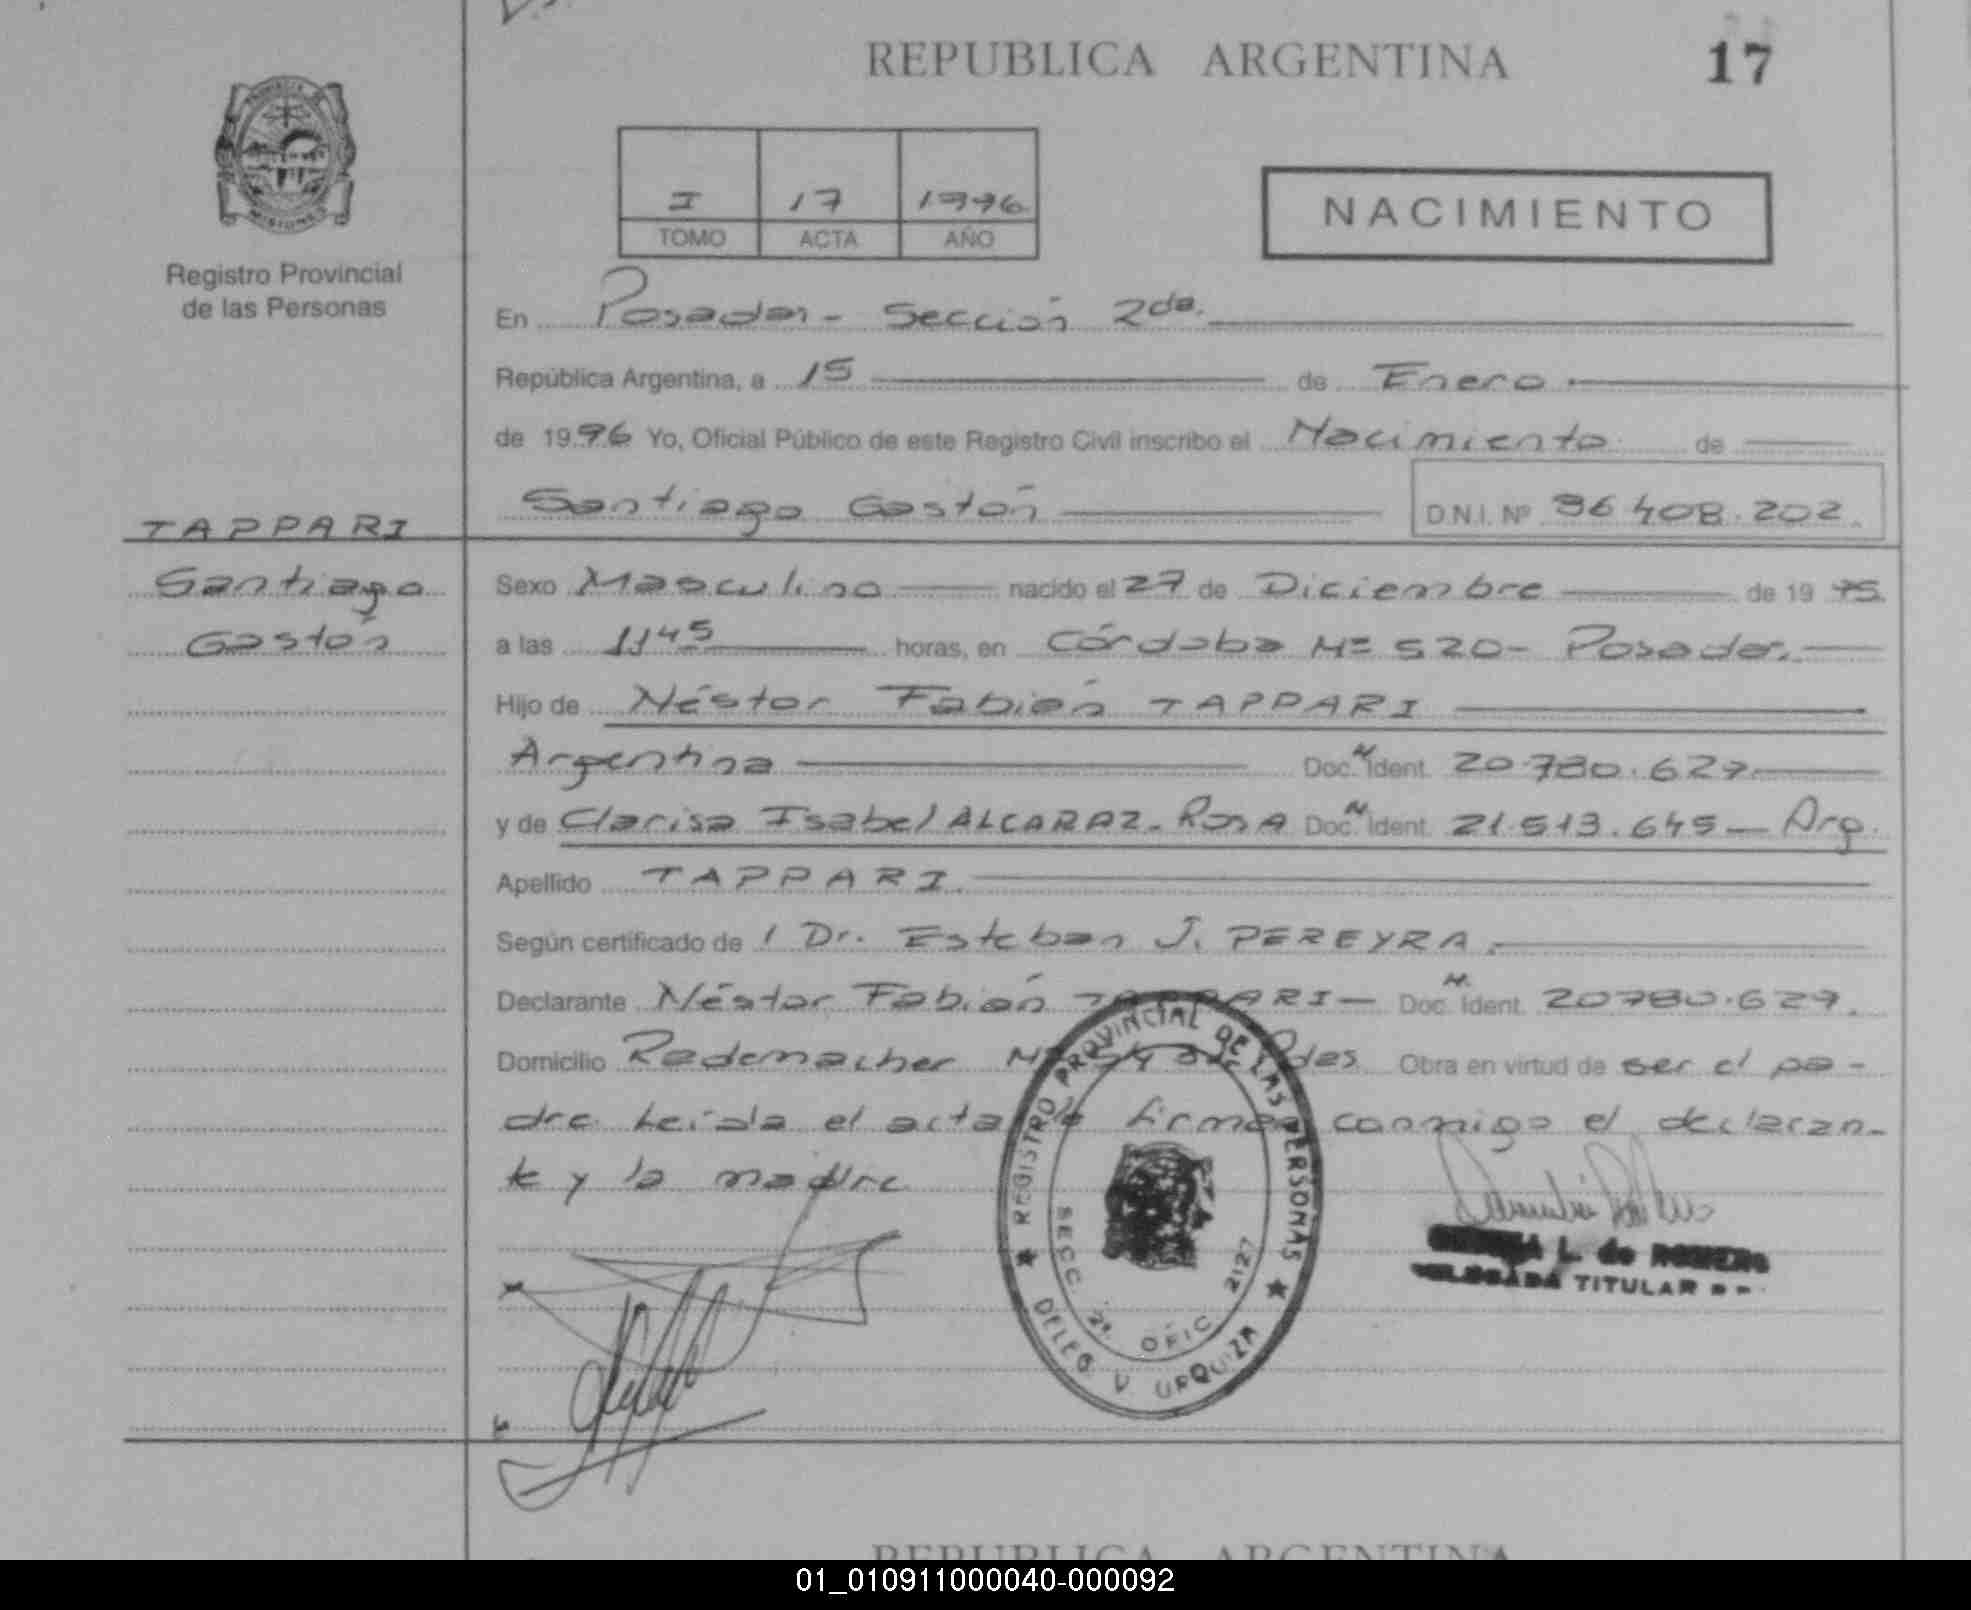 REPUBLICA ARGENTINA
17
I 17 1996
TOMO ACTA AÑO
NACIMIENTO
PROVINCIA DE MISIONES
Registro Provincial
de las Personas
En Posadas - Sección 2da.
República Argentina, a 15 de Enero
de 1996 Yo, Oficial Público de este Registro Civil inscribo el Nacimiento de
Santiago Gastón D.N.I. Nº 96 408.202.
TAPPARI
Santiago
Gastón
Sexo Masculino nacido el 27 de Diciembre de 19 95.
a las 11 45 horas, en Córdoba Nº 520 - Posadas.
Hijo de Néstor Fabián TAPPARI
Argentina Doc. N. Ident. 20.780.627
y de Clarisa Isabel ALCARAZ - Rosa Doc. N. Ident. 21.513.645 - Arg.
Apellido TAPPARI.
Según certificado de / Dr. Esteban J. PEREYRA.
Declarante Néstor Fabián TAPPARI - Doc. N. Ident. 20780.627.
Domicilio Rademacher Pdas Obra en virtud de ser el pa-
dre. Leída el acta la firman conmigo el declaran-
te y la madre
REGISTRO PROVINCIAL DE LAS PERSONAS
SECC. 2ª. OFIC. 2127
DELEG. V. URQUIZA
L. de ROMERO
DELEGADA TITULAR
REPUBLICA ARGENTINA
01_010911000040-000092